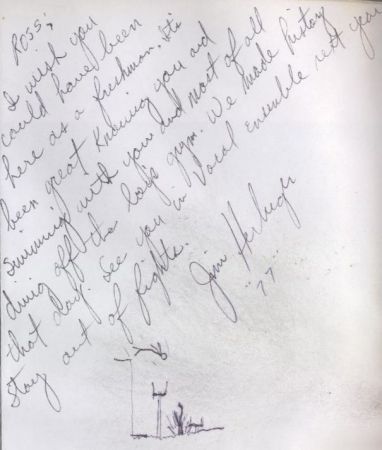 Ross;
I wish you
could have been
here as a freshman. It's
been great knowing you and
swimming with you and most of all
diving off the gym. We made history
that day. See you in Vocal Ensemble next year
stay out of fights.
Jim
"77"